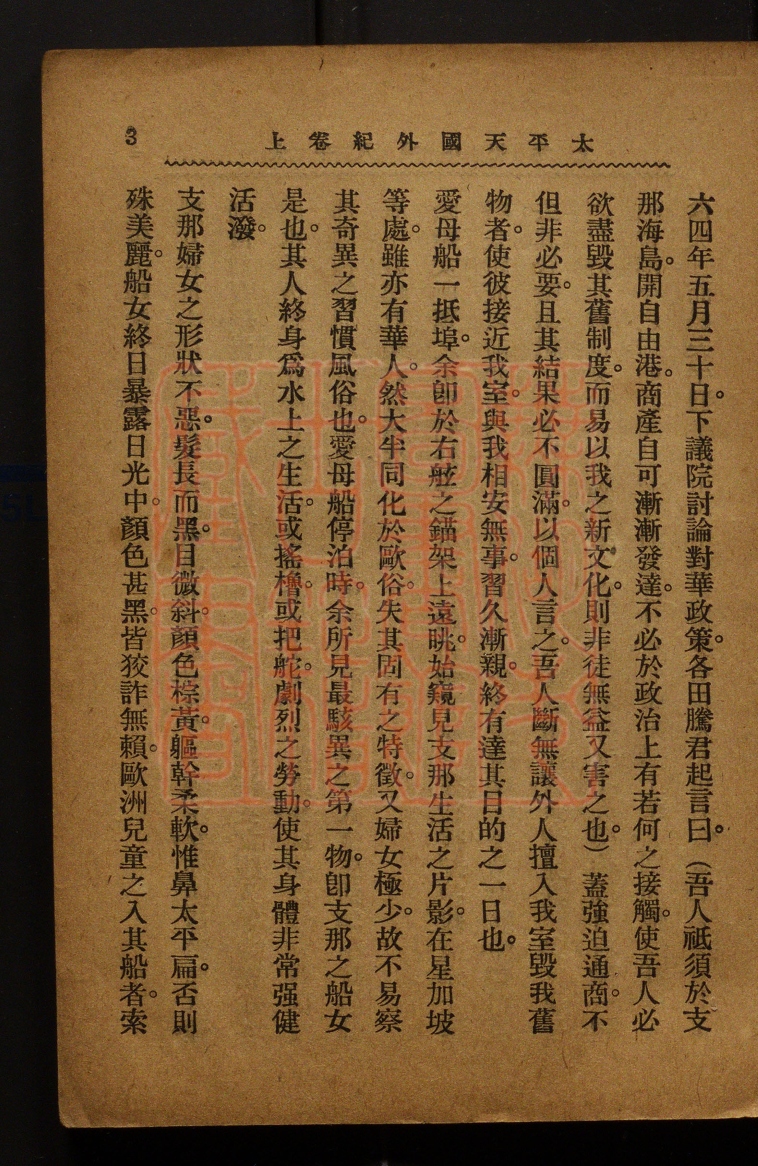 太平天國外紀卷上
3
六四年五月三十日。下議院討論對華政策。各田騰君起言曰。（吾人祗須於支
那海島。開自由港。商產自可漸漸發達。不必於政治上有若何之接觸。使吾人必
欲盡毀其舊制度。而易以我之新文化。則非徒無益又害之也。）蓋強迫通商。不
但非必要。且其結果必不圓滿。以個人言之。吾人斷無讓外人擅入我室毀我舊
物者。使彼接近我室。與我相安無事。習久漸親。終有達其目的之一日也。
愛母船一抵埠。余卽於右舷之錨架上遠眺。始窺見支那生活之片影。在星加坡
等處。雖亦有華人。然大半同化於歐俗。失其固有之特徵。又婦女極少。故不易察
其奇異之習慣風俗也。愛母船停泊時。余所見最駭異之第一物。卽支那之船女
是也。其人終身爲水上之生活。或搖櫓。或把舵。劇烈之勞動。使其身體非常强健
活潑。
支那婦女之形狀不惡。髮長而黑。目微斜。顏色棕黃。軀幹柔軟。惟鼻太平扁。否則
殊美麗。船女終日暴露日光中。顏色甚黑。皆狡詐無賴。歐洲兒童之入其船者。索